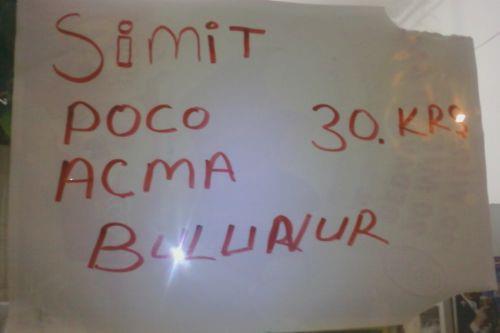 SiMiT
POCO 30. KRŞ
ACMA
BULUNUR